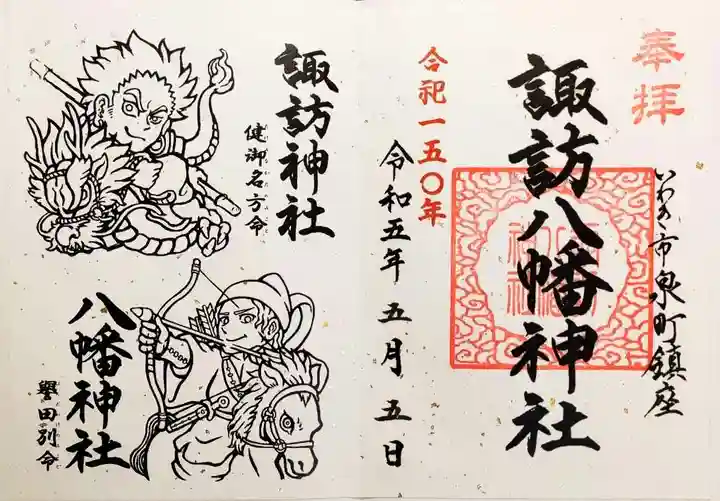 奉拝
いわき市泉町鎮座
諏訪八幡神社
合祀一五〇年
令和五年五月五日
諏訪神社
健御名方命
八幡神社
誉田別命